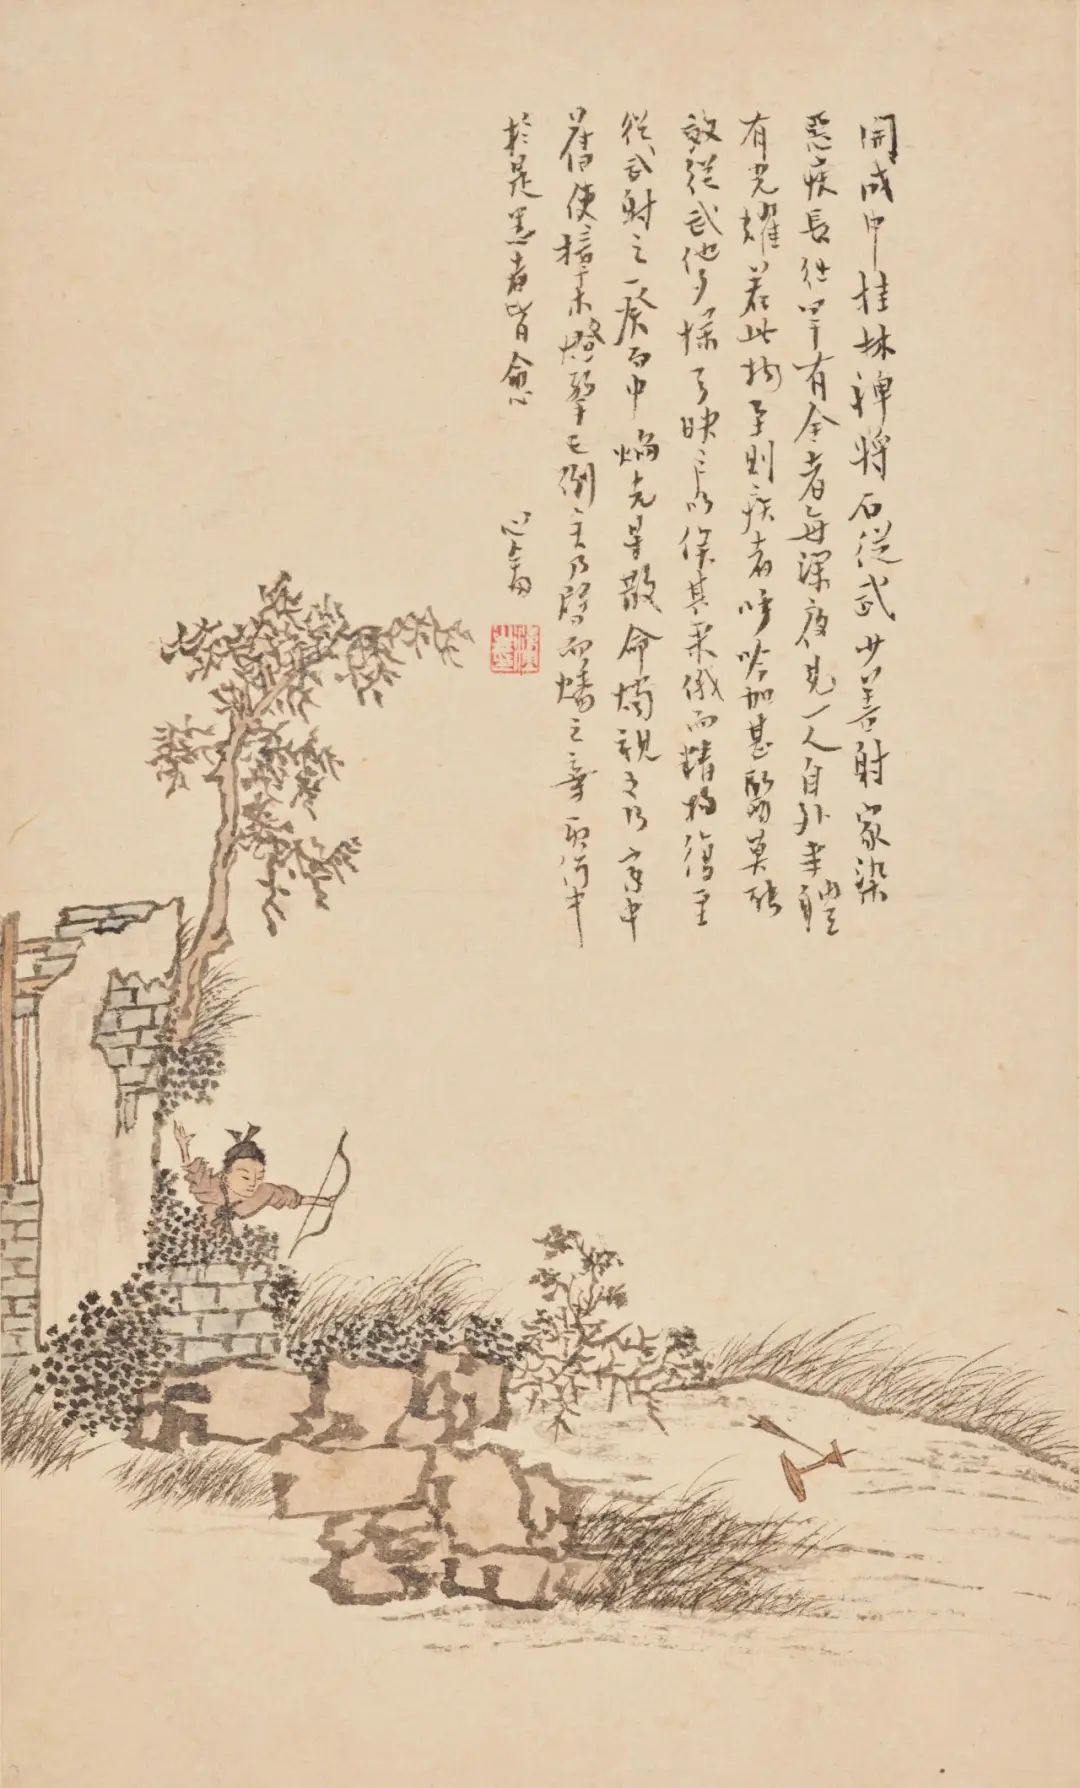 開成中桂林裨將石從武少善射家染
惡疾長幼罕有全者每深夜見一人自外來體
有光耀若此物至則疾者呼吟加甚醫莫能
效從武他夕操弓映戶以俟其來俄而精物復至
從武射之一發而中焰光星散命燭視之乃家中
舊使樟木燈擎已倒矣乃劈而燔之棄灰河中
於是患者皆愈 心畬